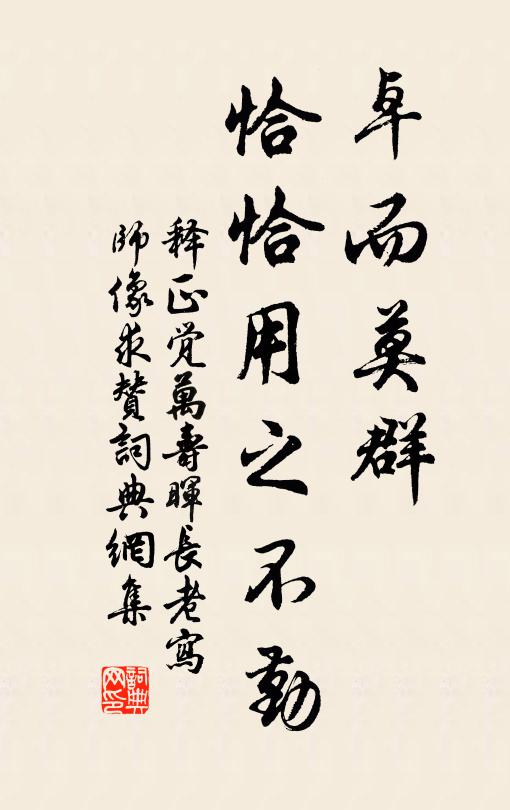 卓而莫群
恰恰用之不勤
释正觉萬壽暉長老寫
師像求贊詞典網集
詞典
网印